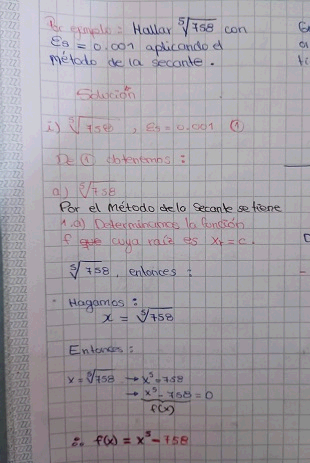 Por ejemplo: Hallar ⁵√758 con
Es = 0.001 aplicando el
método de la secante.
Solución
i) ⁵√758, Es = 0.001 ①
De ① obtenemos:
a) ⁵√758
Por el Método de la Secante se tiene
1.a) Determinamos la función
f que cuya raíz es Xr = c.
⁵√758, entonces:
Hagamos:
x = ⁵√758
Entonces:
x = ⁵√758 → x⁵ = 758
→ x⁵ - 758 = 0
f(x)
∴ f(x) = x⁵ - 758